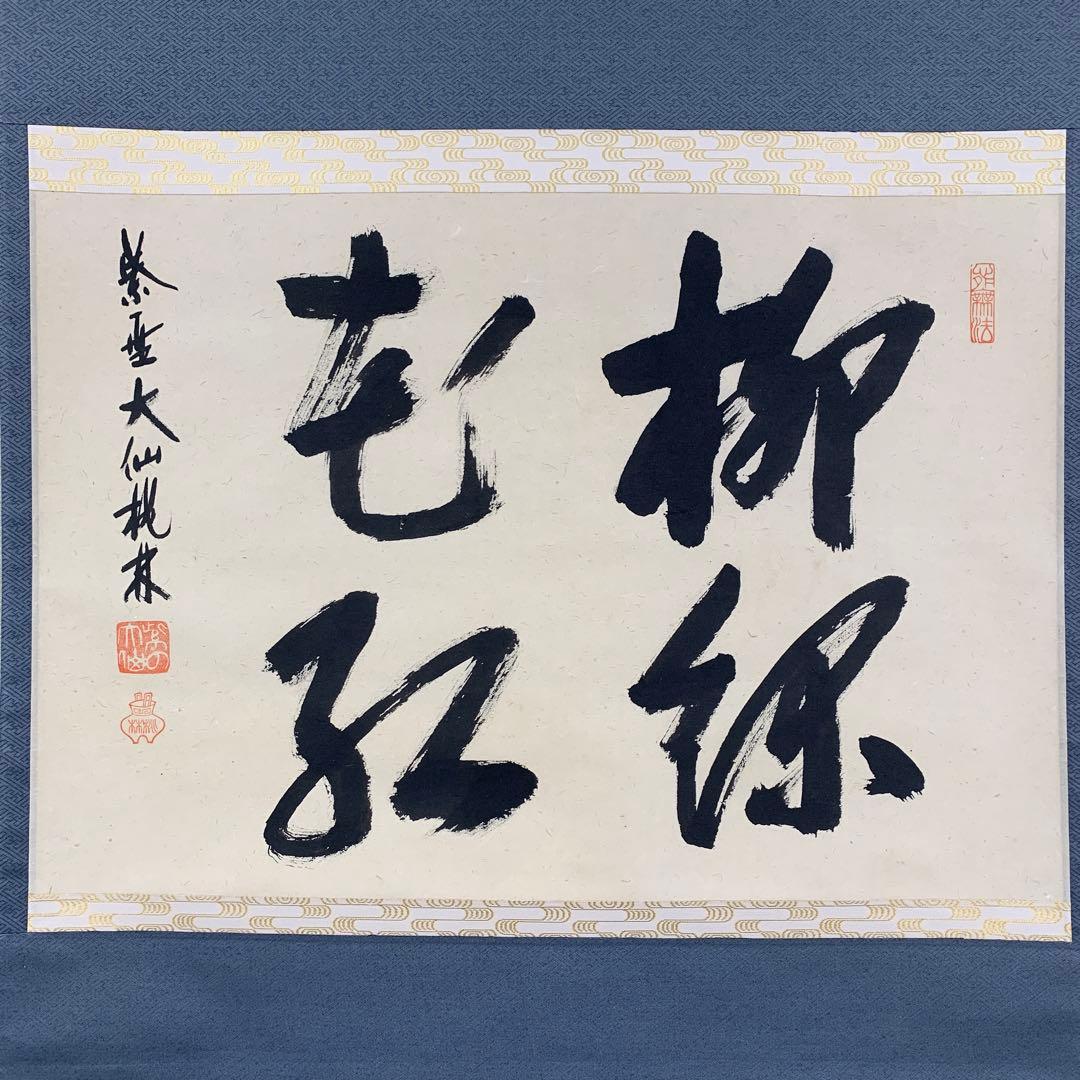 柳緑
花紅
紫野大仙桃林